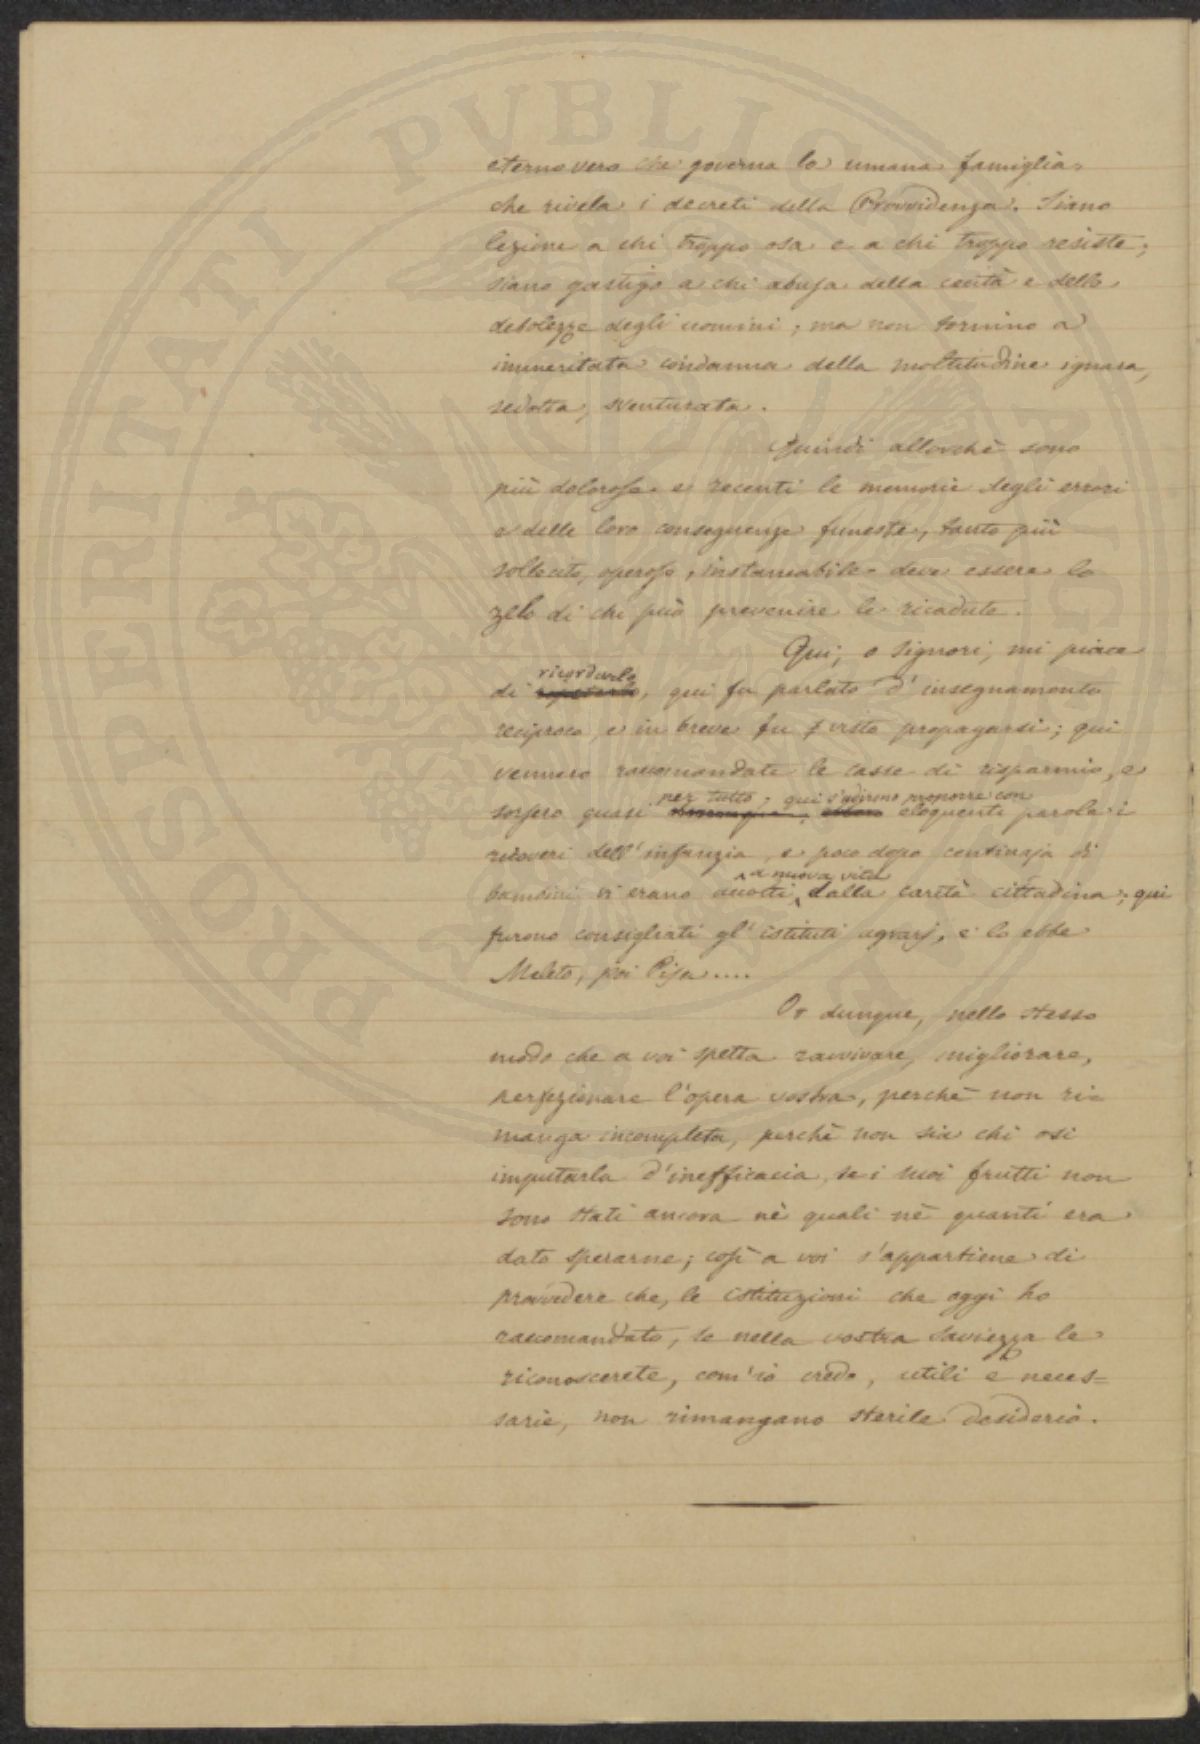 PROSPERITATI PVBLICAE AVGENDAE
eterno vero che governa la umana famiglia,
che rivela i decreti della Provvidenza. Siano
lezione a chi troppo osa e a chi troppo resiste;
siano gastigo a chi abusa della cecità e delle
debolezze degli uomini; ma non tornino a
immeritata condanna della moltitudine ignara,
sedotta, sventurata.
Quindi allorchè sono
più dolorose e recenti le memorie degli errori
e delle loro conseguenze funeste, tanto più
sollecito, operoso, instancabile deve essere lo
zelo di chi può prevenire le ricadute.
Qui, o Signori, mi piace
ricordarlo
di ripeterlo, qui fu parlato d'insegnamento
reciproco, e in breve fu visto propagarsi; qui
vennero raccomandate le casse di risparmio, e
per tutto; qui s'udirono proporre con
sorsero quasi eloquenti parole i
ricoveri dell'infanzia, e poco dopo centinaja di
a nuova vita
bambini vi erano accolti dalla carità cittadina; qui
furono consigliati gl'istituti agrarj, e lo ebbe
Meleto, poi Pisa....
Or dunque, nello stesso
modo che a voi spetta ravvivare, migliorare,
perfezionare l'opera vostra, perchè non ri=
manga incompleta, perchè non sia chi osi
imputarla d'inefficacia, se i suoi frutti non
sono stati ancora nè quali nè quanti era
dato sperarne; così a voi s'appartiene di
provvedere che, le istituzioni che oggi ho
raccomandato, se nella vostra saviezza le
riconoscerete, com'io credo, utili e neces=
sarie, non rimangano sterile desiderio.